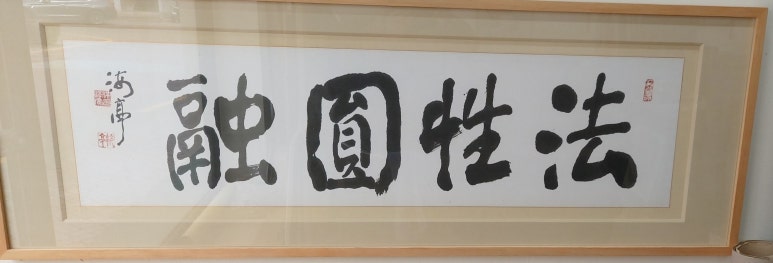 法性圓融
海亭